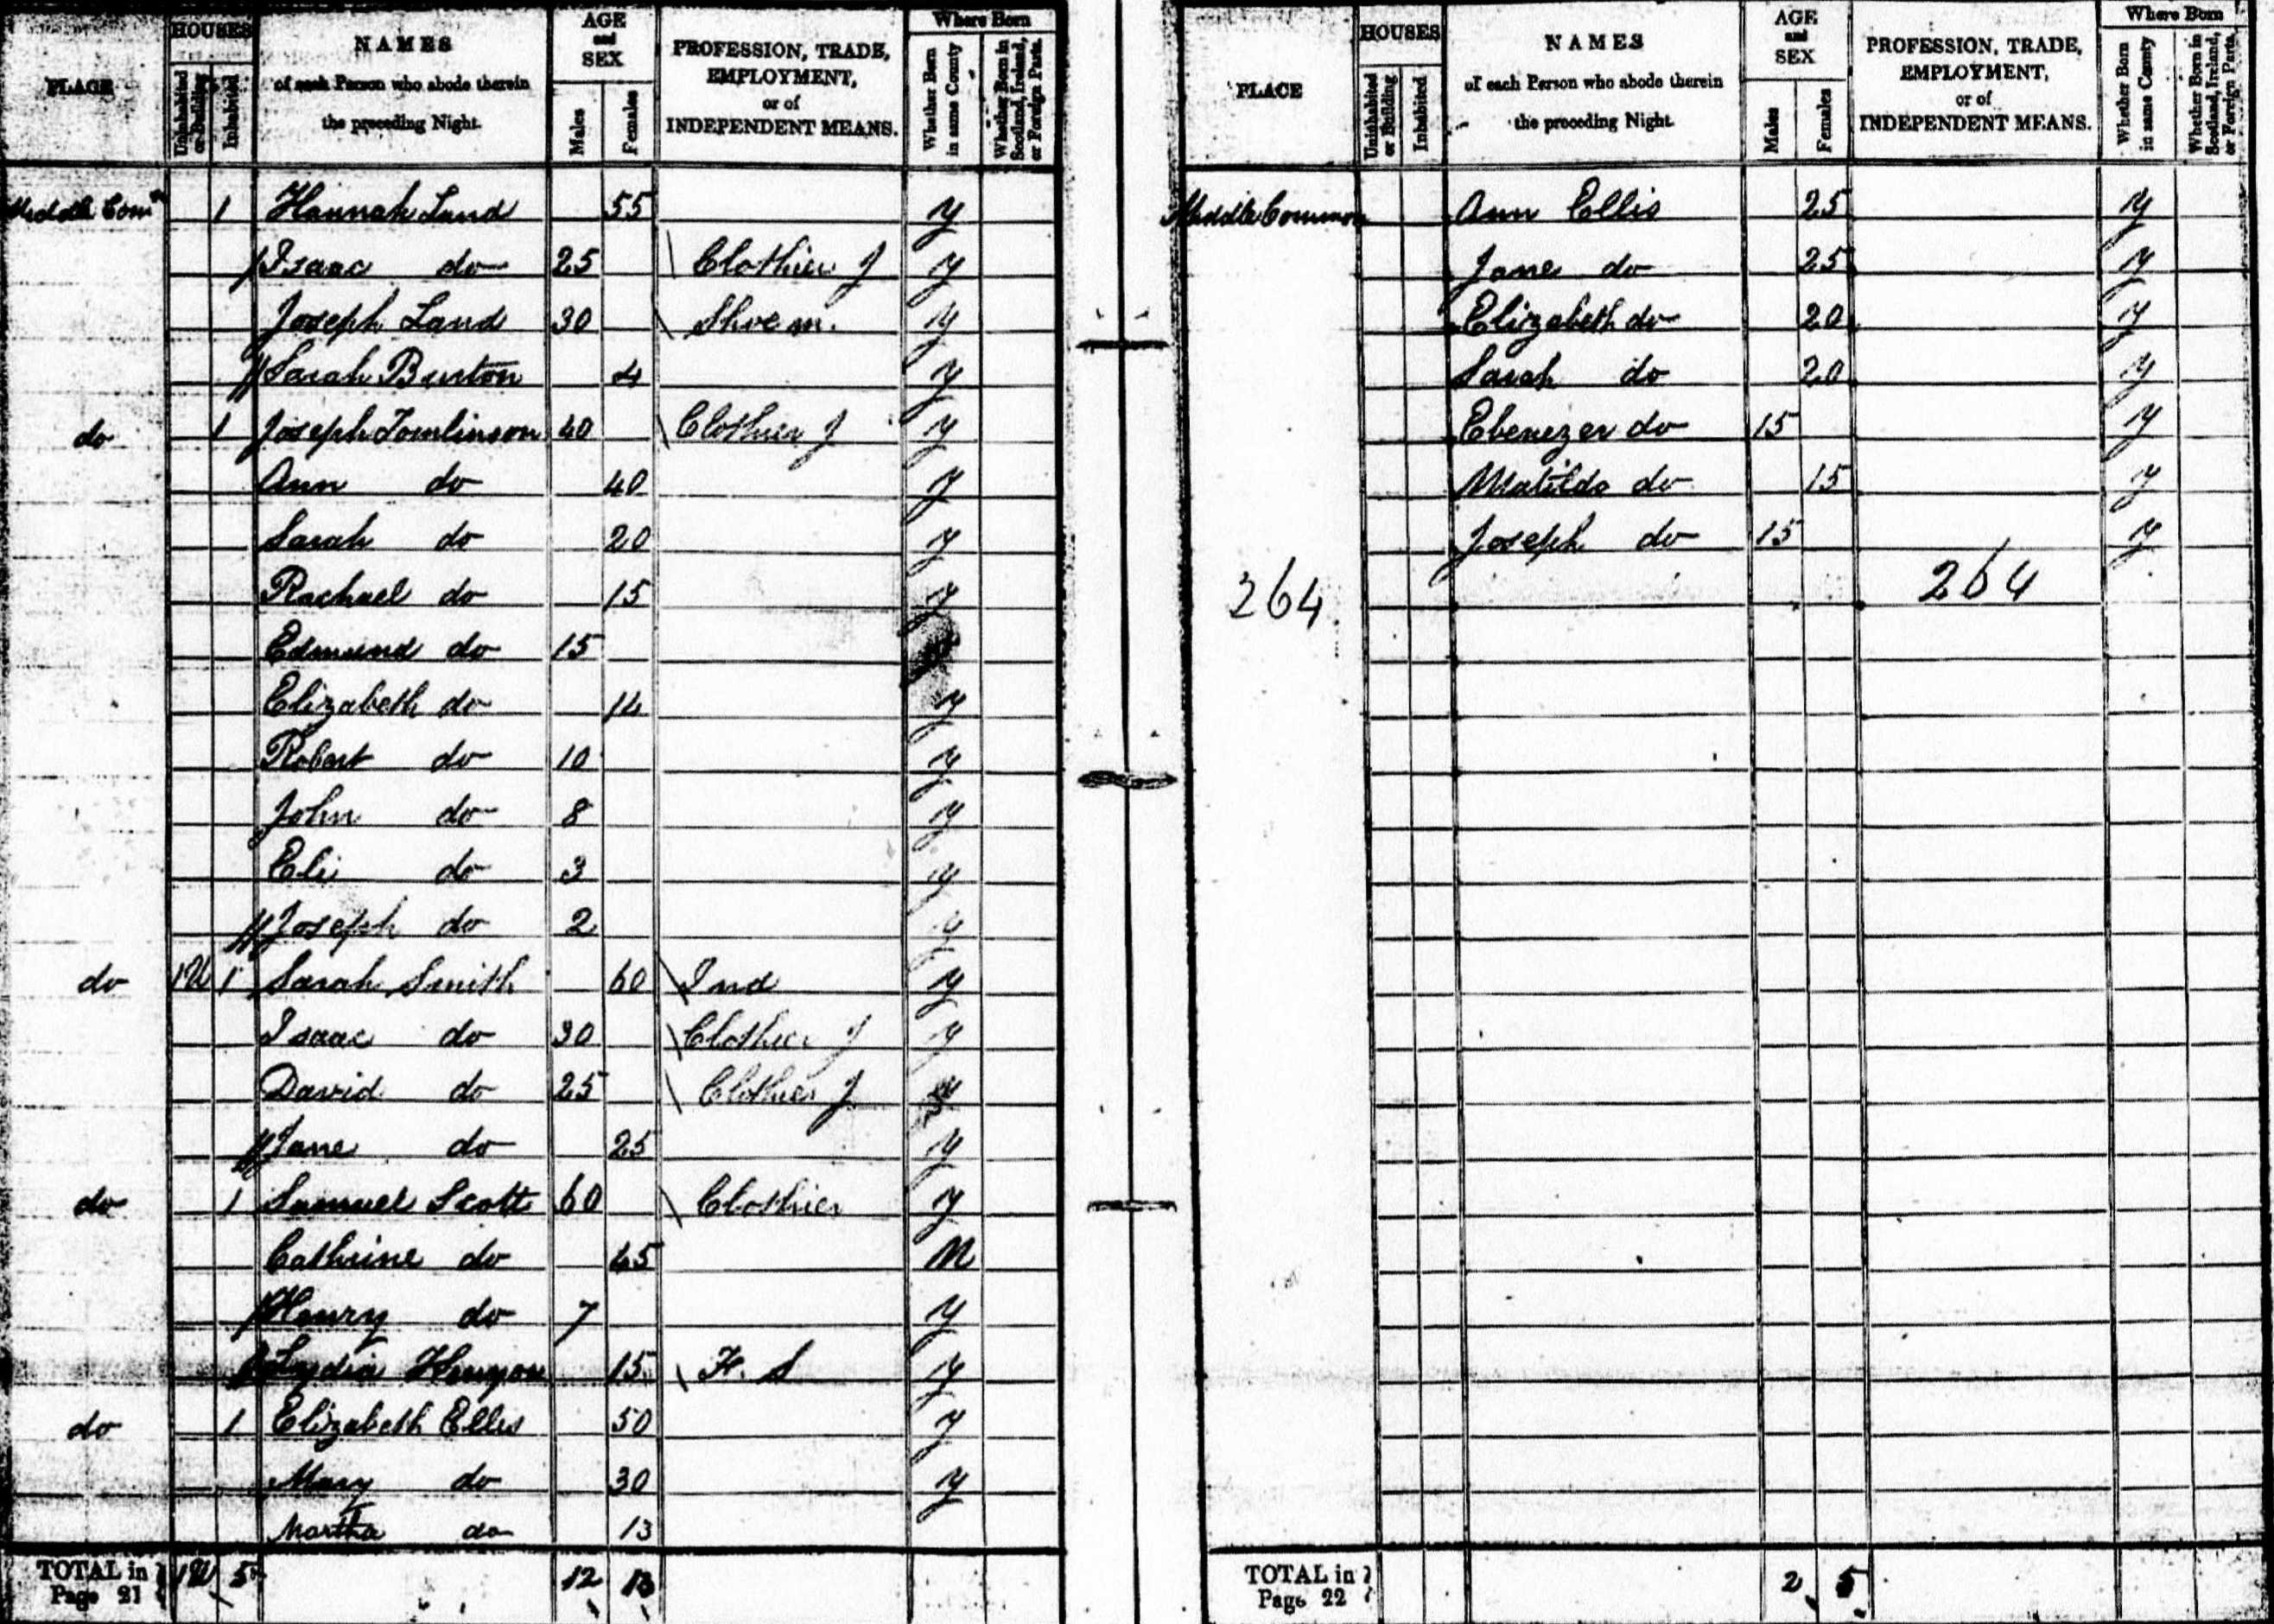 PLACE HOUSES Uninhabited or Building Inhabited NAMES of each Person who abode therein the preceding Night. AGE and SEX Males Females PROFESSION, TRADE, EMPLOYMENT, or of INDEPENDENT MEANS. Where Born Whether Born in same County Whether Born in Scotland, Ireland, or Foreign Parts.
Middle Comn 1 Hannah Land 55 y
Isaac do 25 Clothier J y
Joseph Land 30 Shoe m. y
Sarah Burton 4 y
do 1 Joseph Tomlinson 40 Clothier J y
Ann do 40 y
Sarah do 20 y
Rachael do 15 y
Edmund do 15
Elizabeth do 14 y
Robert do 10 y
John do 8 y
Eli do 3 y
Joseph do 2 y
do 1U 1 Sarah Smith 60 Ind y
Isaac do 30 Clothier J y
David do 25 Clothier J y
Jane do 25 y
do 1 Samuel Scott 60 Clothier y
Cathrine do 45 N
Henry do 7 y
Lydia 15 F. S y
do 1 Elizabeth Ellis 50 y
Mary do 30 y
Martha do 13
TOTAL in Page 21 1U 5 12 13
PLACE HOUSES Uninhabited or Building Inhabited NAMES of each Person who abode therein the preceding Night. AGE and SEX Males Females PROFESSION, TRADE, EMPLOYMENT, or of INDEPENDENT MEANS. Where Born Whether Born in same County Whether Born in Scotland, Ireland, or Foreign Parts.
Middle Common Ann Ellis 25 y
Jane do 25 y
Elizabeth do 20 y
Sarah do 20 y
Ebenezer do 15 y
Matilda do 15 y
Joseph do 15 y
264 264
TOTAL in Page 22 2 5